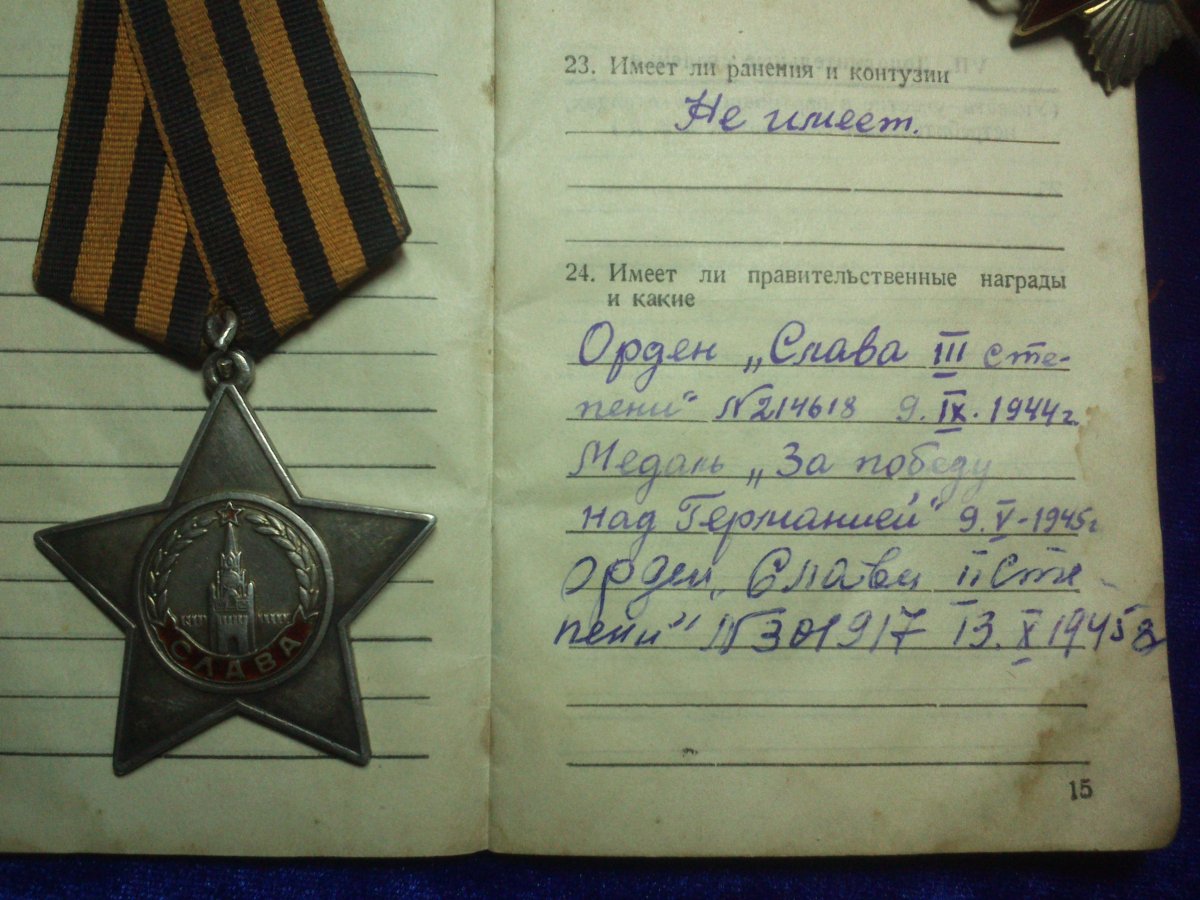 СЛАВА
23. Имеет ли ранения и контузии
Не имеет.
24. Имеет ли правительственные награды
и какие
Орден „Слава III сте-
пени" №214618 9.IX.1944г.
Медаль „За победу
над Германией" 9.V-1945г
Орден „Славы II Сте-
пени" №301917 13.X 1945г
15